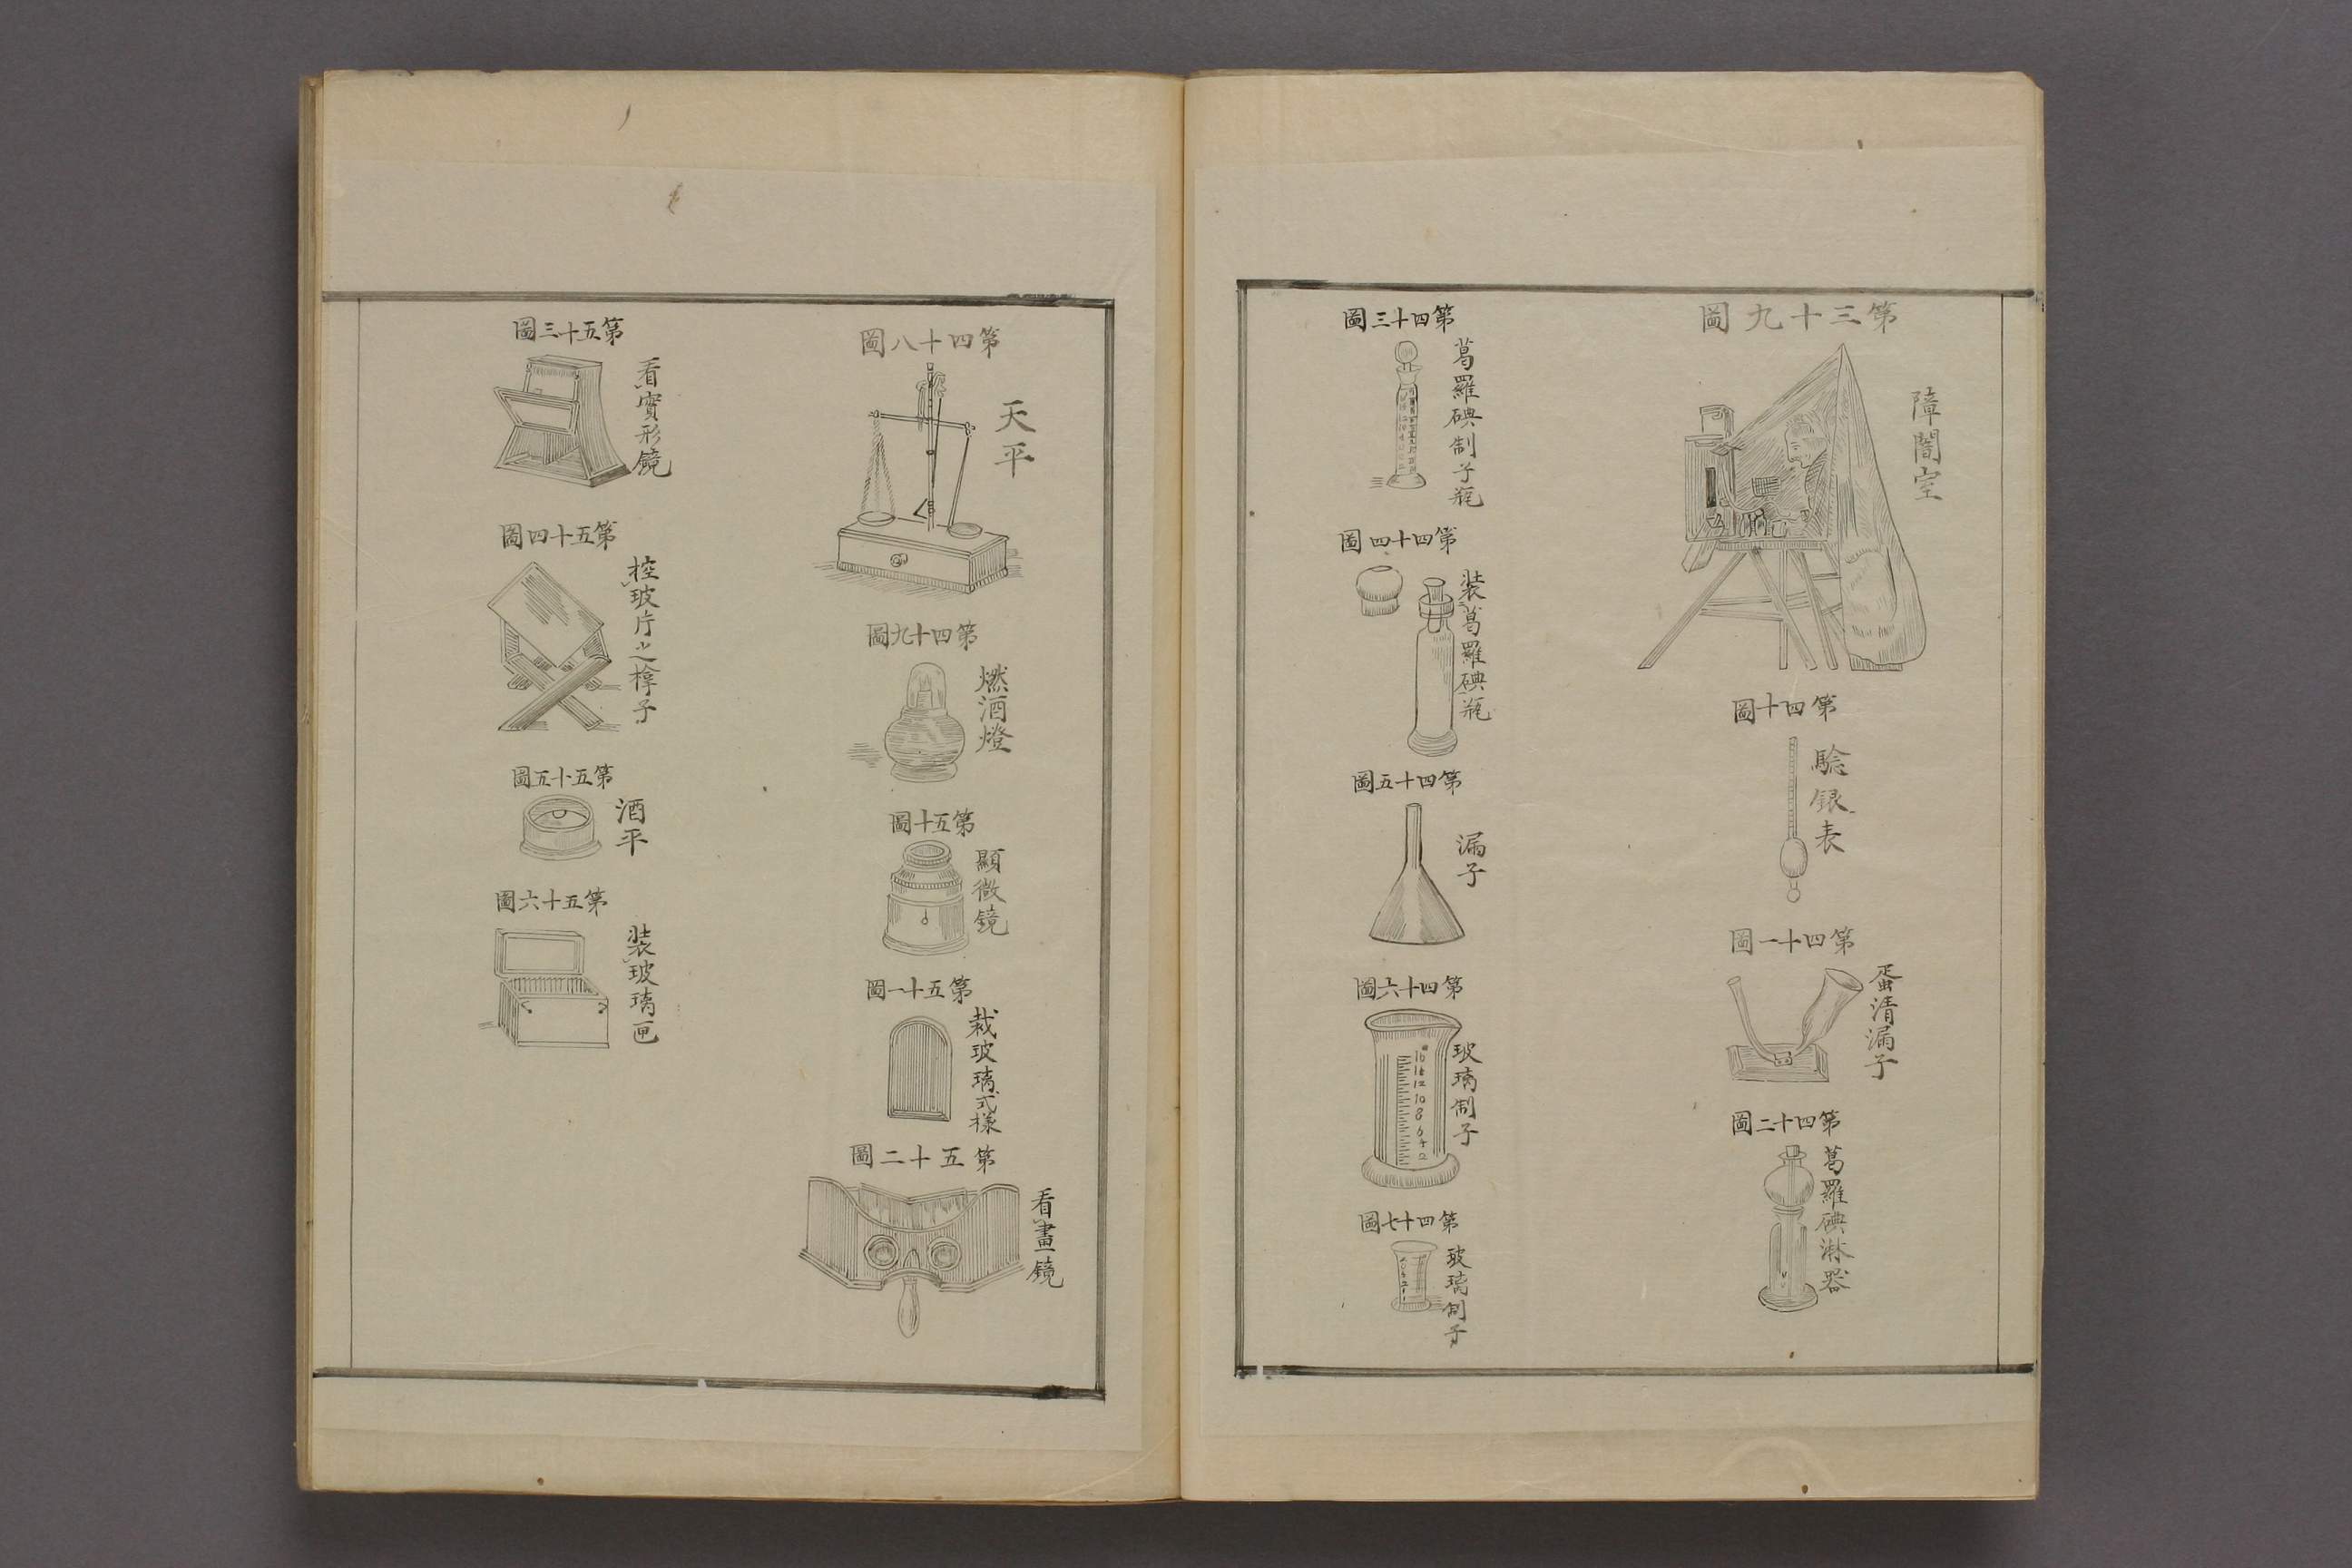 第三十九圖
障闇室
第四十圖
驗銀表
第四十一圖
蛋清漏子
第四十二圖
葛羅碘淋器
第四十三圖
葛羅碘制子瓶
第四十四圖
裝葛羅碘瓶
第四十五圖
漏子
第四十六圖
玻璃制子
12
10
8
6
4
2
第四十七圖
玻璃制子
第四十八圖
天平
第四十九圖
燃酒燈
第五十圖
顯微鏡
第五十一圖
裁玻璃式樣
第五十二圖
看畫鏡
第五十三圖
看實形鏡
第五十四圖
控玻片之榟子
第五十五圖
酒平
第五十六圖
裝玻璃匣